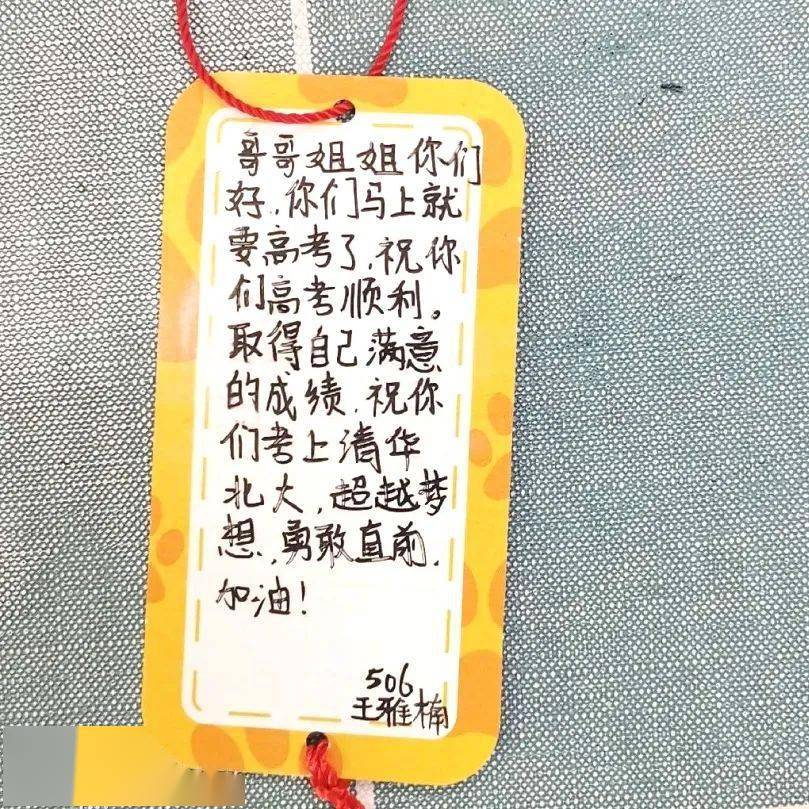 哥哥姐姐你们
好,你们马上就
要高考了,祝你
们高考顺利。
取得自己满意
的成绩,祝你
们考上清华
北大,超越梦
想,勇敢直前,
加油!
506
王雅楠